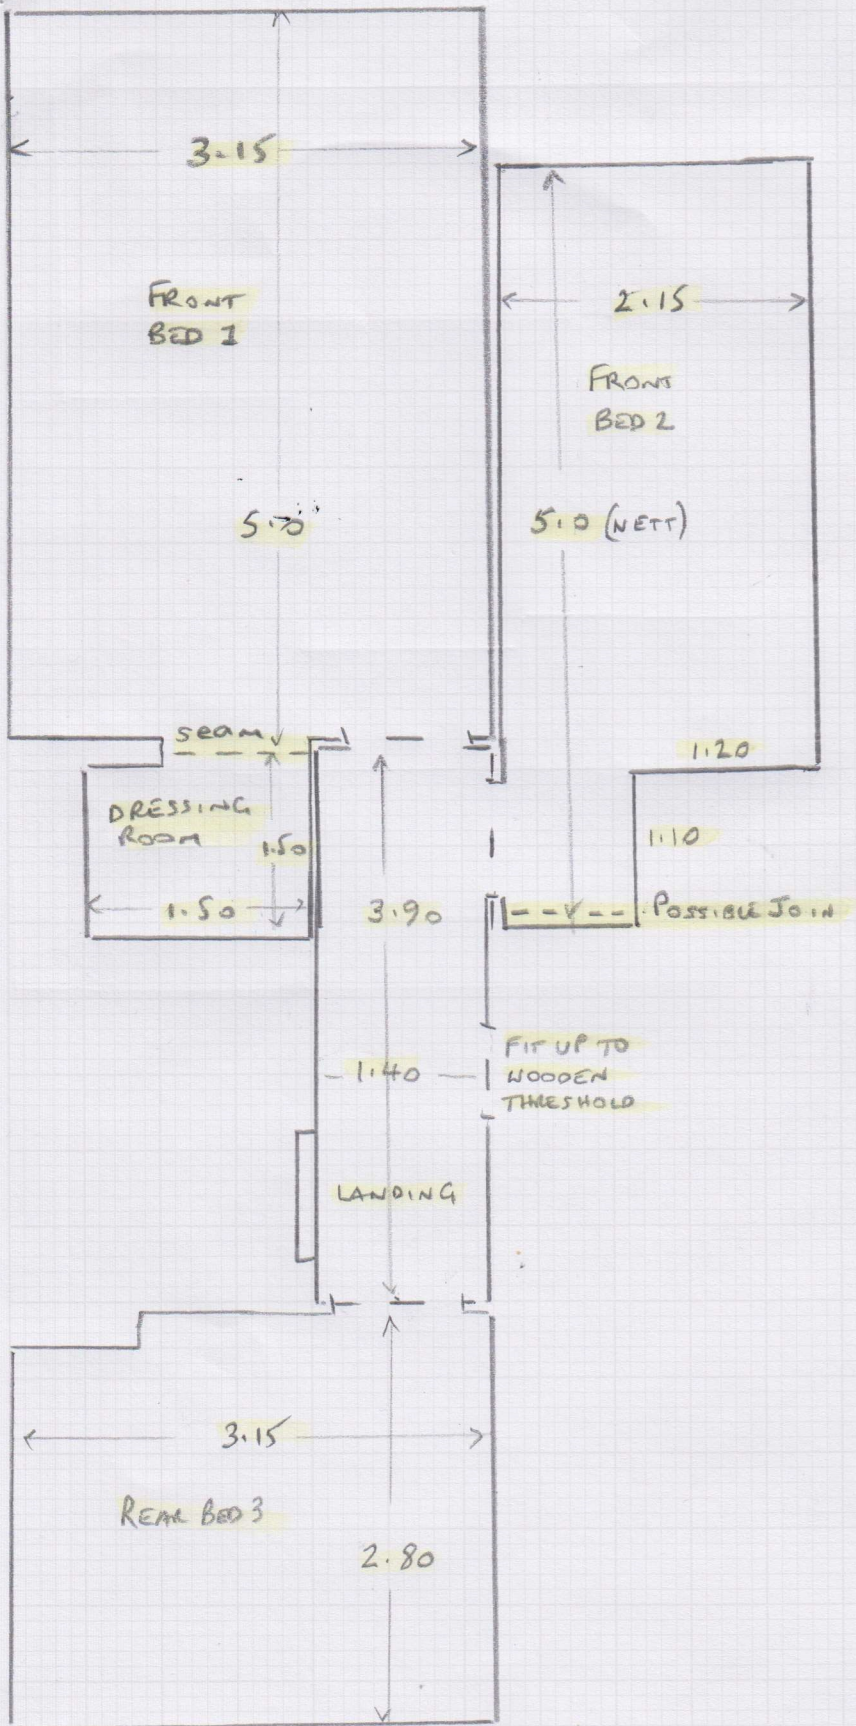 3.15
FRONT
BED 1
2.15
FRONT
BED 2
5.0
5.0 (NETT)
seam
1.20
DRESSING
ROOM
1.50
1.10
1.50
3.90
POSSIBLE JOIN
FIT UP TO
WOODEN
THRESHOLD
1.40
LANDING
3.15
REAR BED 3
2.80